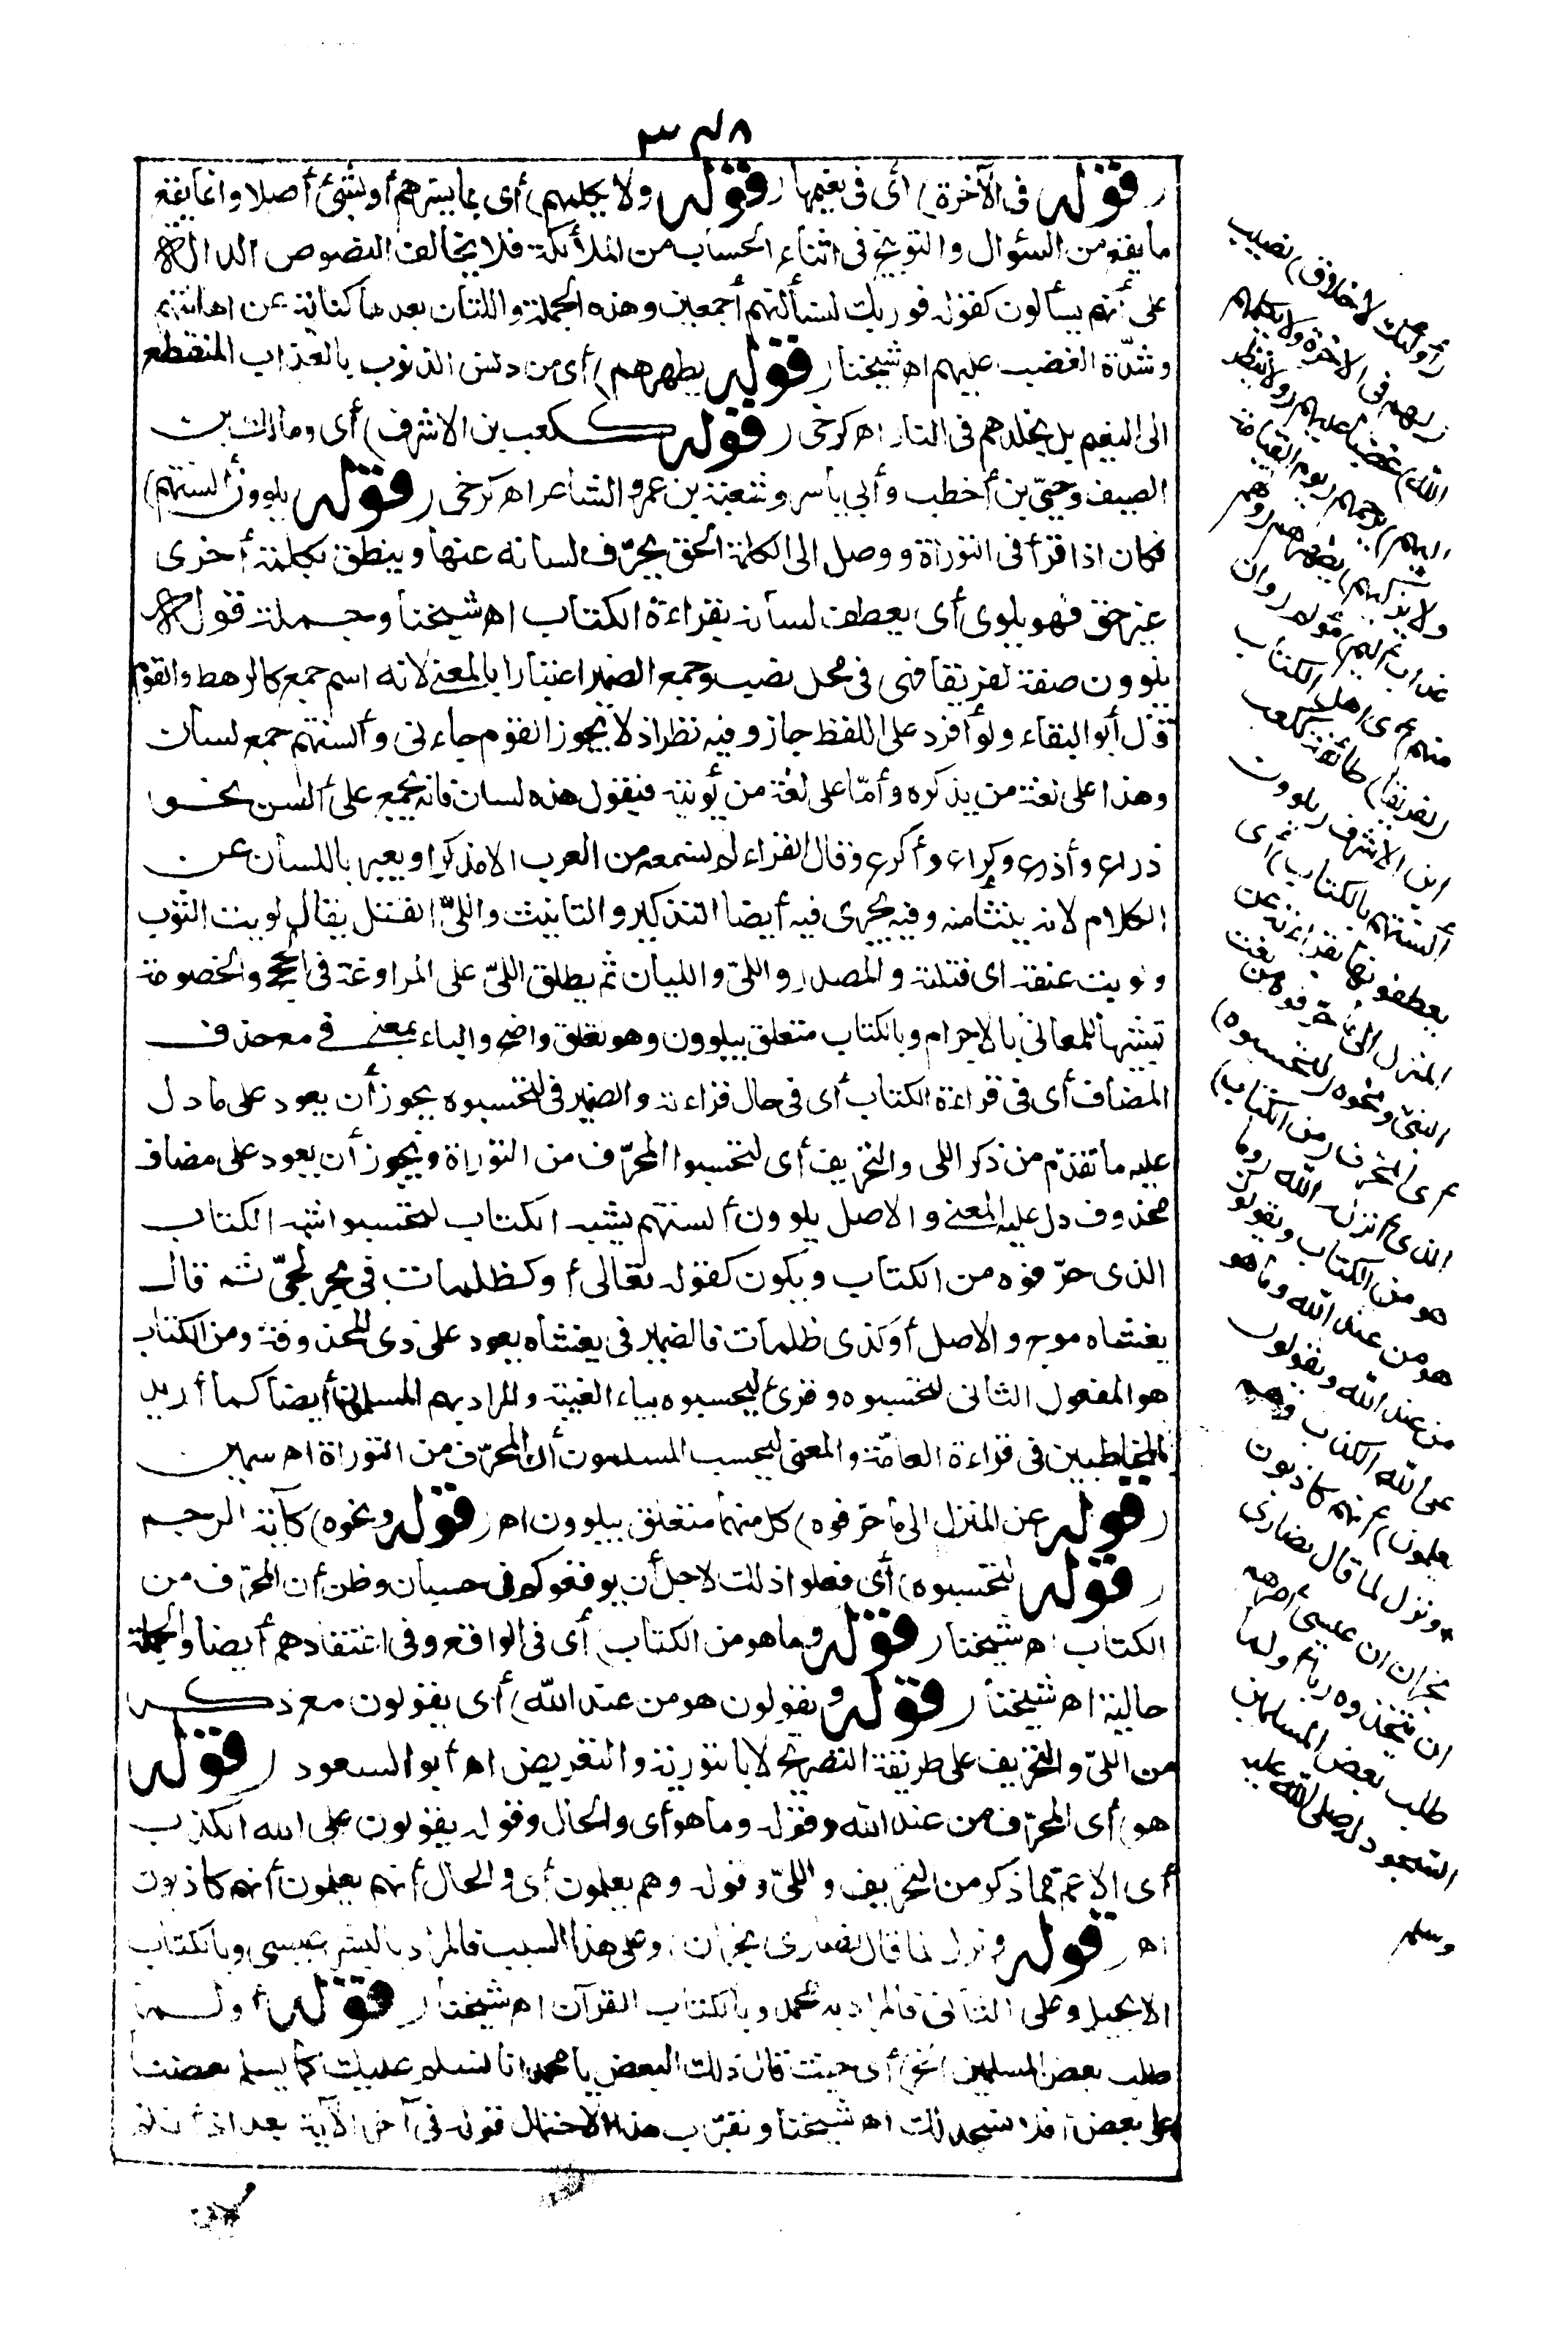 ٣٤٨
(قوله في الآخرة) أى فى نعيمها (قوله ولا يكلمهم) أى بما يسرهم أو بشئ أصلا وانما يقع
ما يقع من السؤال والتوبيخ فى اثناء الحساب من الملائكة فلا يخالف النصوص الدالة
على أنهم يسألون كقوله فوربك لنسألنهم أجمعين وهذه الجملة واللتان بعدها كناية عن اهانتهم
وشدّة الغضب عليهم اه شيخنا (قوله يطهرهم) أى من دنس الذنوب بالعذاب المنقطع
الى النعيم بل يخلدهم فى النار اه كرخى (قوله ككعب بن الاشرف) أى ومالك بن
الصيف وحيىّ بن أخطب وأبى ياسر وشعبة بن عمرو الشاعر اه كرخى (قوله يلوون ألسنتهم)
فكان اذا قرأ فى التوراة ووصل الى الكلمة الحق يحرّف لسانه عنها وينطق بكلمة أخرى
غير حق فهو يلوى أى يعطف لسانه بقراءة الكتاب اه شيخنا وجملة قوله
يلوون صفة لفريقا فهى فى محل نصب وجمع الضمير اعتبارا بالمعنى لانه اسم جمع كالرهط والقوم
قال أبو البقاء ولو أفرد على اللفظ جاز وفيه نظر اذ لا يجوز القوم جاءنى وألسنتهم جمع لسان
وهذا على لغة من يذكره وأمّا على لغة من يؤنثه فيقول هذه لسان فانه يجمع على ألسن نحو
ذراع وأذرع وكراع وأكرع وقال الفراء لم نسمعه من العرب الا مذكرا ويعبر باللسان عن
الكلام لانه ينشأ منه وفيه يجرى فيه أيضا التذكير والتأنيث واللىّ الفتل يقال لويت الثوب
ولويت عنقه اى فتلته والمصدر واللىّ والليان ثم يطلق اللىّ على المراوغة فى الحجج والخصومة
تشبيها للمعانى بالاجرام وبالكتاب متعلق بيلوون وهو تعلق واضح والباء بمعنى فى مع حذف
المضاف أى فى قراءة الكتاب أى فى حال قراءته والضمير فى لتحسبوه يجوز أن يعود على ما دل
عليه ما تقدّم من ذكر اللى والتحريف أى لتحسبوا المحرّف من التوراة ويجوز أن يعود على مضاف
محذوف دل عليه المعنى والاصل يلوون ألسنتهم بشبه الكتاب لتحسبوا شبه الكتاب
الذى حرّفوه من الكتاب ويكون كقوله تعالى أو كظلمات فى بحر لجىّ ثم قال
يغشاه موج والاصل أو كذى ظلمات فالضمير فى يغشاه يعود على ذى المحذوفة ومن الكتاب
هو المفعول الثانى لتحسبوه وقرئ ليحسبوه بياء الغيبة والمراد بهم المسلمون أيضا كما أريد
بالمخاطبين فى قراءة العامّة والمعنى ليحسب المسلمون أن المحرّف من التوراة اه سمين
(قوله عن المنزل الى ما حرّفوه) كل منهما متعلق بيلوون اه (قوله ونحوه) كآية الرجم
(قوله لتحسبوه) أى فعلوا ذلك لاجل أن يوقعوكم فى حسبان وظن أن المحرّف من
الكتاب اه شيخنا (قوله وما هو من الكتاب) أى فى الواقع وفى اعتقادهم أيضا والجملة
حالية اه شيخنا (قوله ويقولون هو من عند الله) أى يقولون مع ذكر
من اللىّ والتحريف على طريقة التصريح لا بالتورية والتعريض اه أبو السعود (قوله
هو) أى المحرّف من عند الله وقوله وما هو أى والحال وقوله يقولون على الله الكذب
أى الاعم مما ذكر من التحريف واللىّ وقوله وهم يعلمون أى والحال أنهم يعلمون أنهم كاذبون
اه (قوله ونزل لما قال نصارى نجران) وعلى هذا السبب فالمراد بالبشر عيسى وبالكتاب
الانجيل وعلى الثانى فالمراد به محمد وبالكتاب القرآن اه شيخنا (قوله أو لما
طلب بعض المسلمين الخ) أى حيث قال ذلك البعض يا محمد انا نسلم عليك كما يسلم بعضنا
على بعض أفلا نسجد لك اه شيخنا ويقرّب هذا الاحتمال قوله فى آخر الآية بعد اذ أنتم
(أولئك لا خلاق) نصيب
(لهم فى الآخرة ولا يكلمهم
الله) غضبا عليهم (ولا ينظر
اليهم) يرحمهم (يوم القيامة
ولا يزكيهم) يطهرهم (ولهم
عذاب أليم) مؤلم (وان
منهم) أى اهل الكتاب
(لفريقا) طائفة ككعب
ابن الاشرف (يلوون
ألسنتهم بالكتاب) أى
يعطفونها بقراءته عن
المنزل الى ما حرّفوه من نعت
النبىّ ونحوه (لتحسبوه)
أى المحرّف (من الكتاب)
الذى انزل الله (وما
هو من الكتاب ويقولون
هو من عند الله وما هو
من عند الله ويقولون
على الله الكذب وهم
يعلمون) أنهم كاذبون
* ونزل لما قال نصارى
نجران ان عيسى أمرهم
ان يتخذوه ربا أو لما
طلب بعض المسلمين
السجود له صلى الله عليه
وسلم